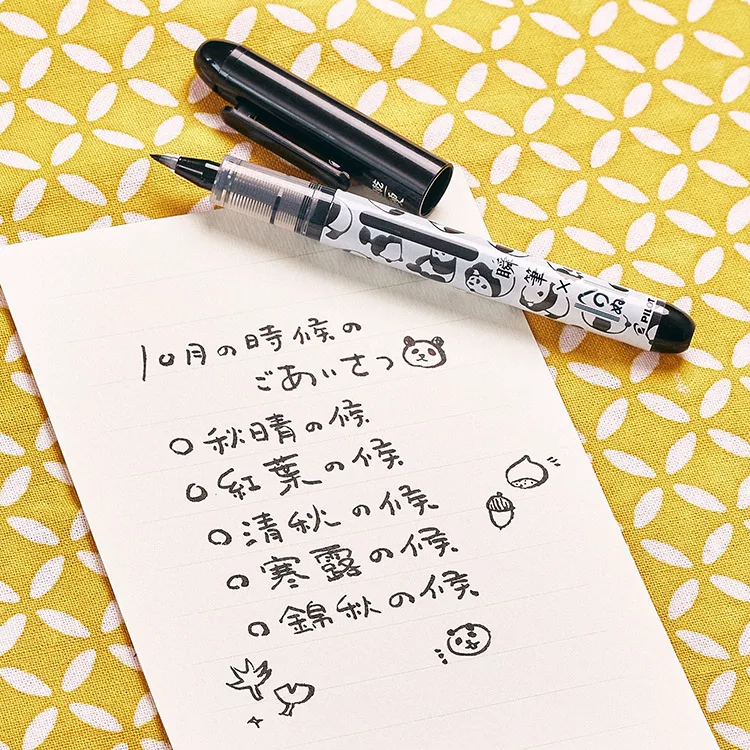 瞬筆
瞬筆×
PILOT
10月の時候の
ごあいさつ
○秋晴の候
○紅葉の候
○清秋の候
○寒露の候
○錦秋の候